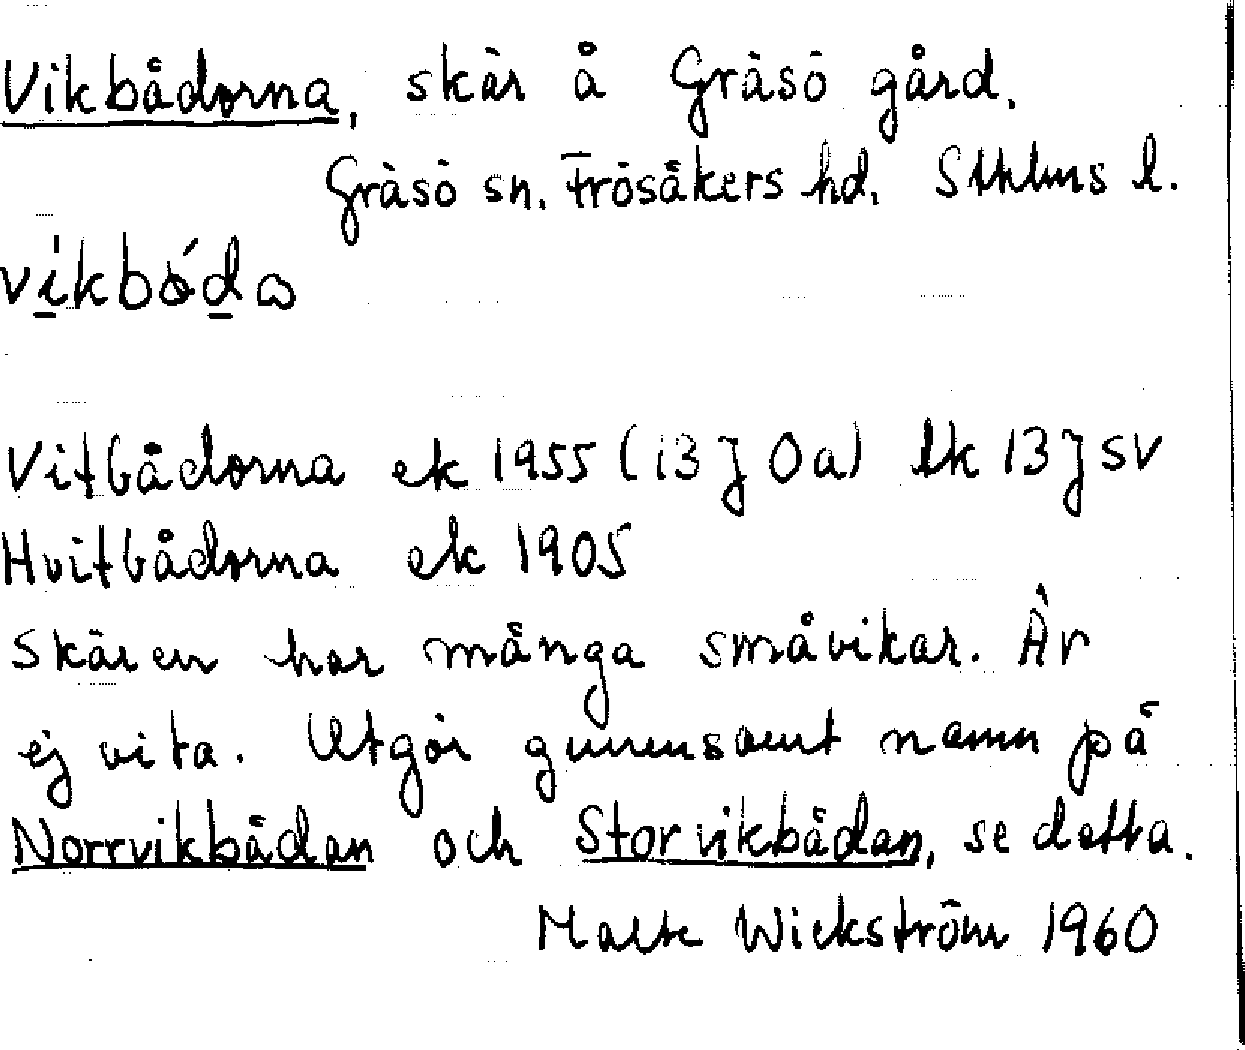 Vikbådorna, skär å Gräsö gård.
Gräsö sn. Frösåkers hd. Sthlms l.
vikbóda
Vitbådorna ek 1955 (13 J 0a) ek 13 J SV
Hvitbådorna ek 1905
Skären har många småvikar. Är
ej vita. Utgör gemensamt namn på
Norrvikbådan och Storvikbådan, se detta.
Malte Wickström 1960